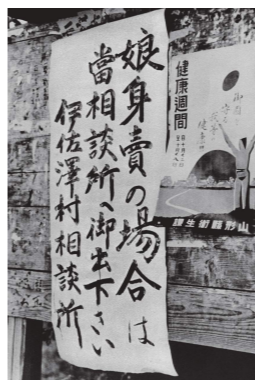 娘身賣の場合は
當相談所へ御出下さい
伊佐澤村相談所
健康週間
山形縣衛生課